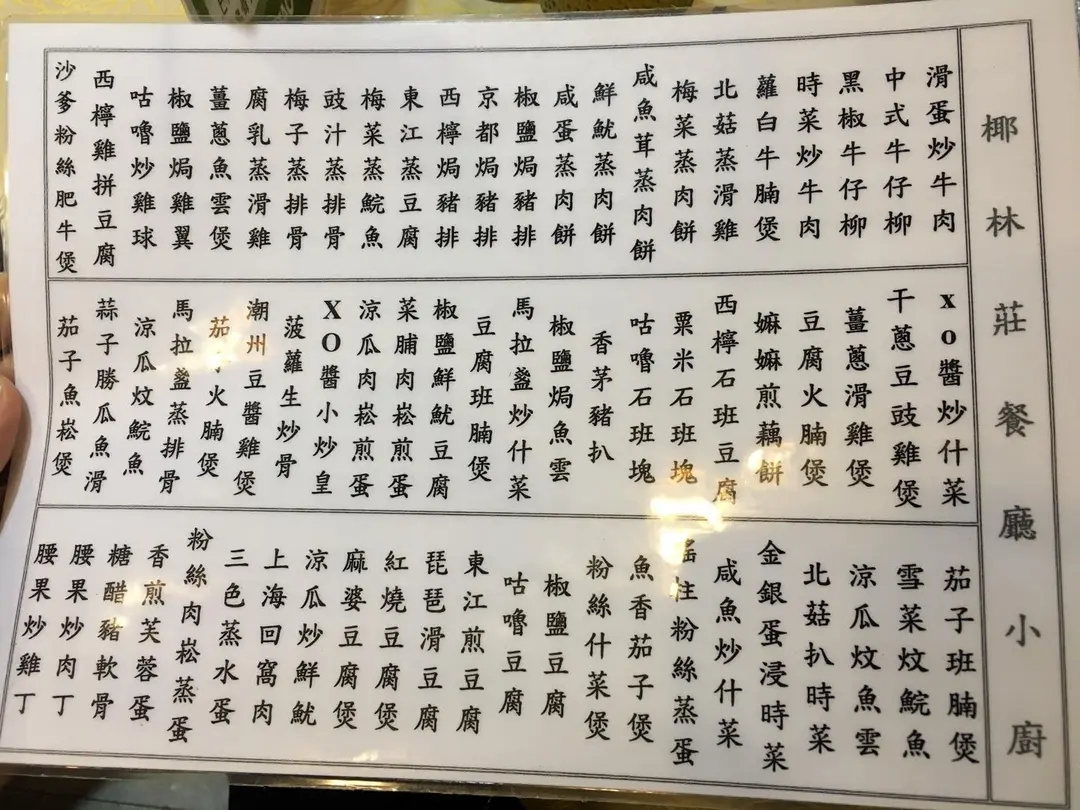 椰林莊餐廳小廚
滑蛋炒牛肉
中式牛仔柳
黑椒牛仔柳
時菜炒牛肉
蘿白牛腩煲
北菇蒸滑雞
梅菜蒸肉餅
咸魚茸蒸肉餅
鮮魷蒸肉餅
咸蛋蒸肉餅
椒鹽焗豬排
京都焗豬排
西檸焗豬排
東江蒸豆腐
梅菜蒸鯇魚
豉汁蒸排骨
梅子蒸排骨
腐乳蒸滑雞
薑蔥魚雲煲
椒鹽焗雞翼
咕嚕炒雞球
西檸雞拼豆腐
沙爹粉絲肥牛煲
xo醬炒什菜
干蔥豆豉雞煲
薑蔥滑雞煲
豆腐火腩煲
嫲嫲煎藕餅
西檸石班豆腐
粟米石班塊
咕嚕石班塊
香茅豬扒
椒鹽焗魚雲
馬拉盞炒什菜
豆腐班腩煲
椒鹽鮮魷豆腐
菜脯肉崧煎蛋
涼瓜肉崧煎蛋
XO醬小炒皇
菠蘿生炒骨
潮州豆醬雞煲
茄子火腩煲
馬拉盞蒸排骨
涼瓜炆鯇魚
蒜子勝瓜魚滑
茄子魚崧煲
茄子班腩煲
雪菜炆鯇魚
涼瓜炆魚雲
北菇扒時菜
金銀蛋浸時菜
咸魚炒什菜
瑤柱粉絲蒸蛋
魚香茄子煲
粉絲什菜煲
椒鹽豆腐
咕嚕豆腐
東江煎豆腐
琵琶滑豆腐
紅燒豆腐煲
麻婆豆腐煲
涼瓜炒鮮魷
上海回窩肉
三色蒸水蛋
粉絲肉崧蒸蛋
香煎芙蓉蛋
糖醋豬軟骨
腰果炒肉丁
腰果炒雞丁